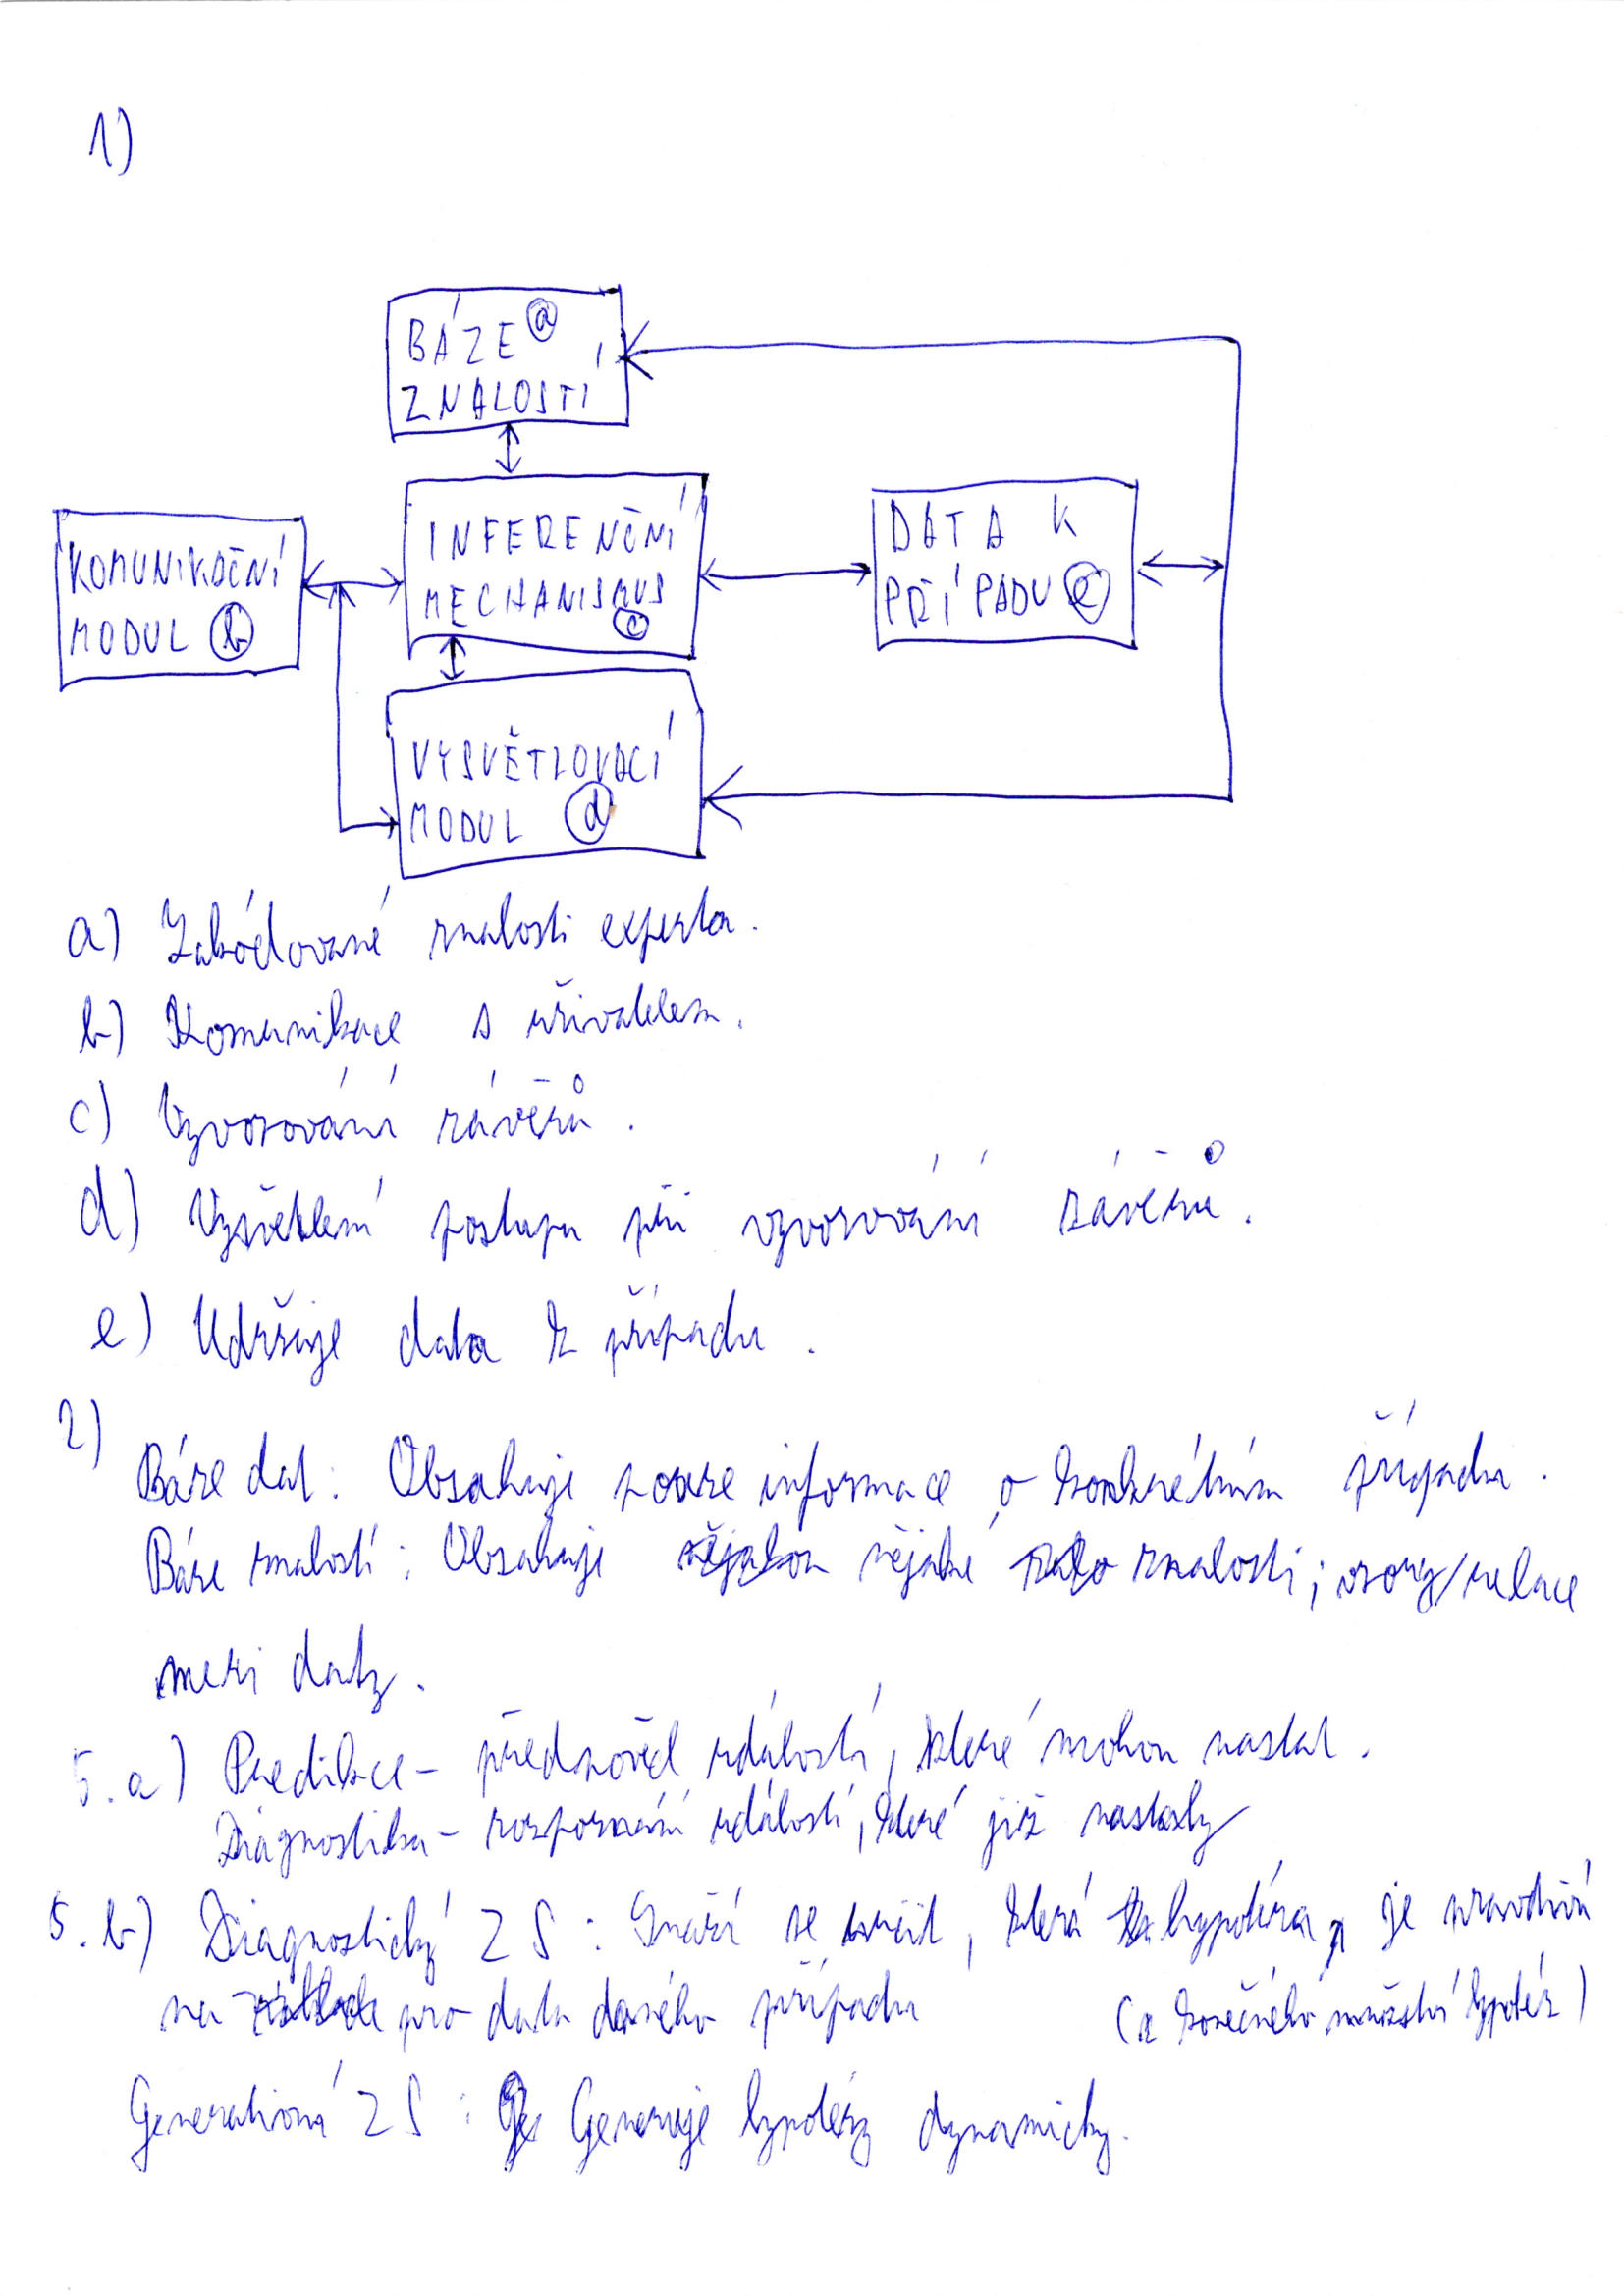 1)
BÁZE a
ZNALOSTÍ
KOMUNIKAČNÍ
MODUL b
INFERENČNÍ
MECHANISMUS
c
DATA K
PŘÍPADU e
VYSVĚTLOVACÍ
MODUL d
a) Zakódované znalosti experta.
b) Komunikace s uživatelem.
c) Vyvozování závěrů.
d) Vysvětlení postupu při vyvozování závěrů.
e) Udržuje data k případu.
2)
Báze dat: Obsahuje pouze informace o konkrétním případu.
Báze znalostí: Obsahuje nějaké znalosti; vzory/relace
mezi daty.
5.a) Predikce - předpověď událostí, které mohou nastat.
Diagnostika - rozpoznání událostí, které již nastaly
5.b) Diagnostický ZS: Snaží se určit, která hypotéza, je pravdivá
na pro data daného případu (z konečného množství hypotéz)
Generativní ZS: Generuje hypotézy dynamicky.